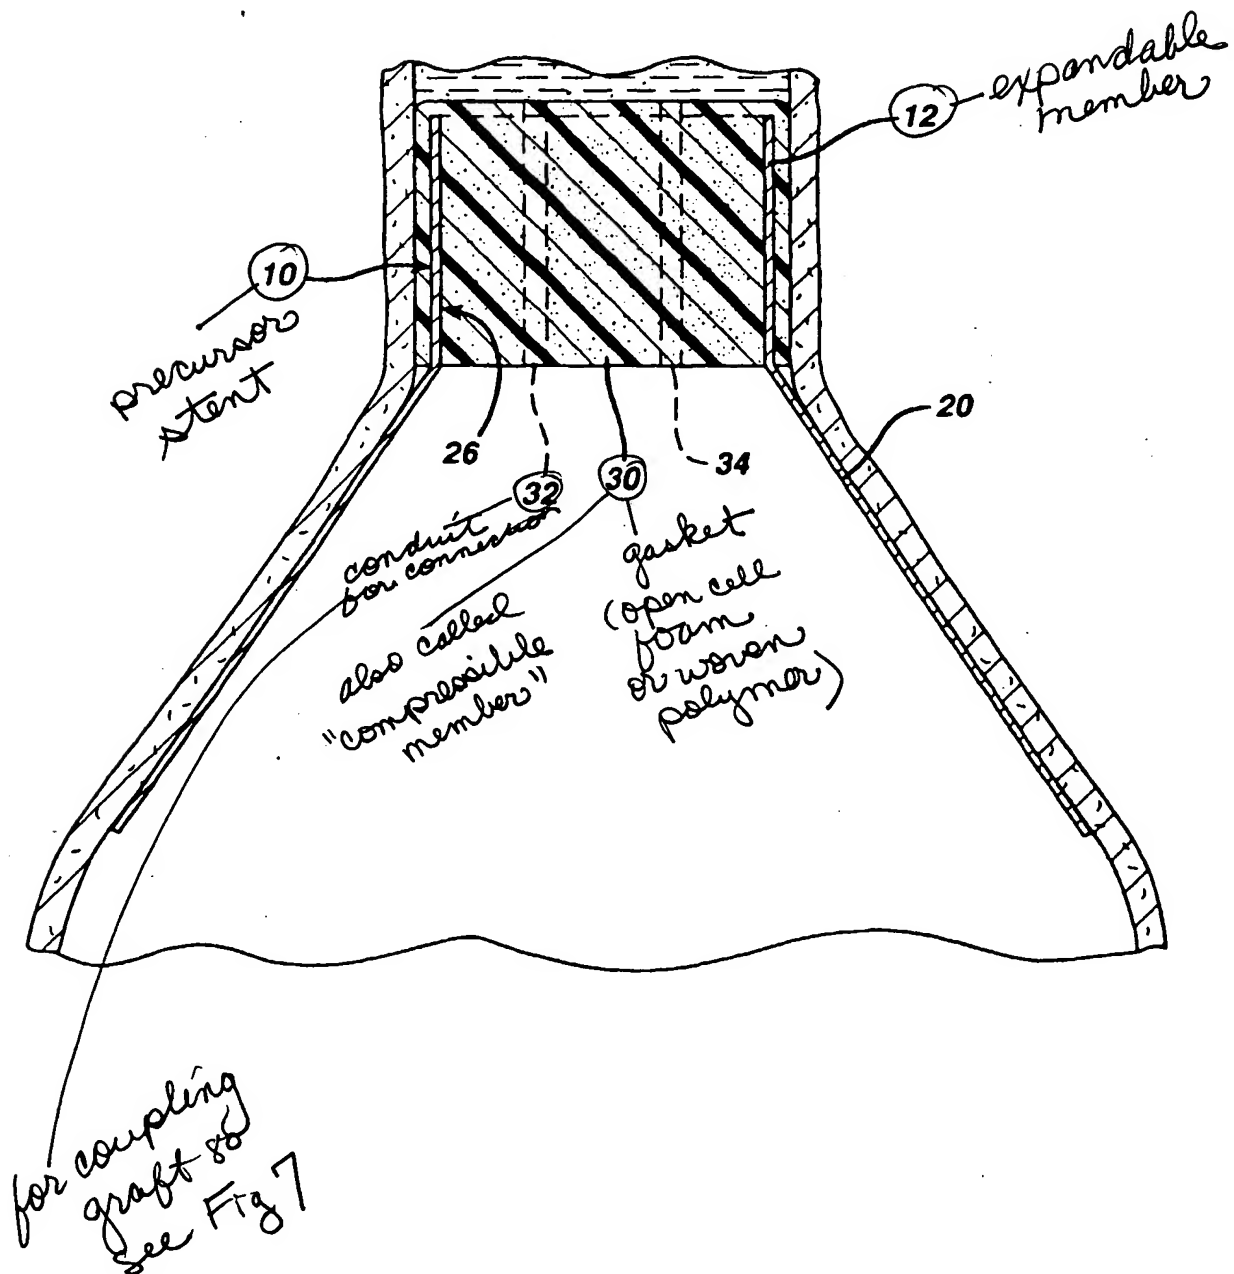 12 - expandable
member
10
precursor
stent
20
26
32
30
34
conduit
for connection
also called
"compressible
member"
gasket
(open cell
foam
or woven
polymer)
for coupling
graft 80
see Fig 7